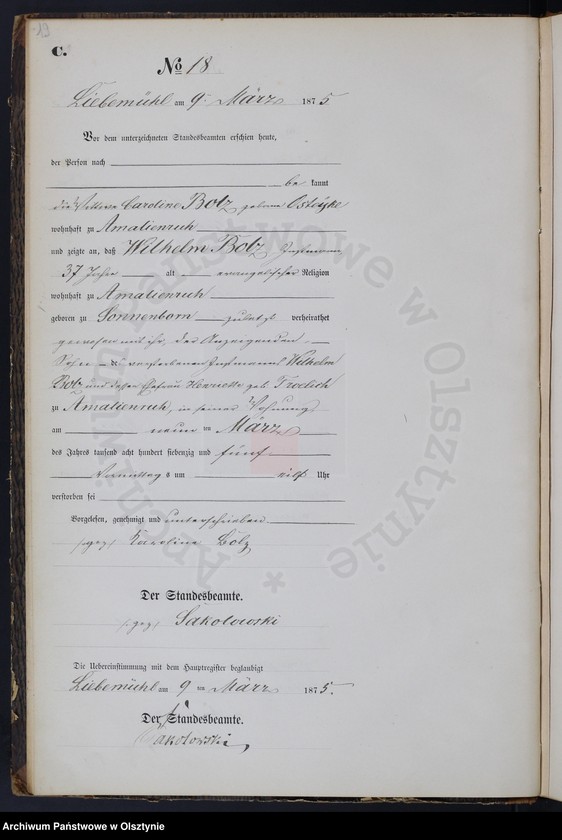 19
C.
No 18
Liebemühl am 9. März 1875
Vor dem unterzeichneten Standesbeamten erschien heute,
der Person nach
be kannt
die Wittwe Caroline Botz geborne
wohnhaft zu Amalienruh
und zeigte an, daß Wilhelm Botz, Instmann,
37 Jahre alt evangelischer Religion
wohnhaft zu Amalienruh
geboren zu Sonnenborn zuletzt verheirathet
gewesen mit ihr, der Anzeigenden
Sohn des verstorbenen Instmanns Wilhelm
Botz und dessen Ehefrau Henriette geb. Froelich
zu Amalienruh, in seiner Wohnung
am neun ten März
des Jahres tausend acht hundert siebenzig und fünf
Vormittag s um eilf Uhr
verstorben sei
Vorgelesen, genehmigt und unterschrieben
(gez) Karoline Botz
Der Standesbeamte.
(gez) Sakolowski
Die Uebereinstimmung mit dem Hauptregister beglaubigt
Liebemühl am 9 ten März 1875.
Der Standesbeamte.
Sakolowski
Archiwum Państwowe w Olsztynie
Archiwum Państwowe w Olsztynie